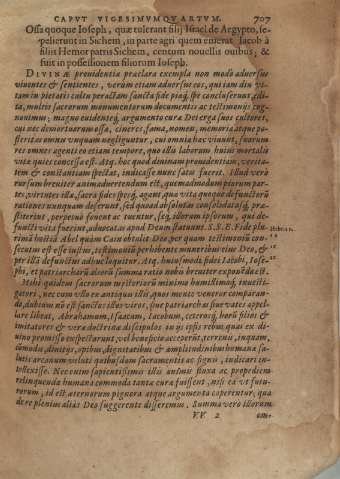 CAPUT VIGESIMUMQUARTUM. 707
Ossa quoque Ioseph, quæ tulerant filij Israel de Aegypto, se-
pelierunt in Sichem, in parte agri quem emerat Iacob à
filiis Hemor patris Sichem, centum nouellis ouibus, &
fuit in possessionem filiorum Ioseph.
DIVINAE prouidentia præclara exempla non modò aduersus
viuentes & sentientes, verum etiam aduersus eos, qui iam diu vi-
tam in pietatis cultu peractam sancta fide spéq; concluserunt, edi-
ta, multis sacrorum monumentorum documentis ac testimoniis cog-
nouimus; magno euidentéq; argumento cura Dei erga suos cultores,
cui nec demortuorum ossa, cineres, fama, nomen, memoria atque po-
steritas omnis vnquam negliguntur, cui omnia hac viuunt, suorum
res omnes agenti eo etiam tempore, quo illa laborum huius mortalis
vitæ quies concessa est. Atq. hoc quod diuinam prouidentiam, verita-
tem & constantiam spectat, indicasse nunc satis fuerit. Illud verò
rursum breuiter animaduertendum est, quemadmodum piorum par-
tes, virtutes
ratione nunquam deserunt, sed quoad absolutas consolidatasq; præ-
stiterint, perpetuò fouent ac tuentur, seq; illorum ipsorum, qui de-
functi vita fuerint, aduocatos apud Deum statuunt. S.S.B. Fide plu- Hebr. 11.
rimā hostiā Abel quàm Cain obtulit Deo, per quam testimoniū con-
secutus est esse iustus, testimoniū perhibente muneribus eius Deo, &
per illā defunctus adhuc loquitur. Atq. huiusmodi fidei Iacobi, Iose-
phi, et patriarcharū aliorū summa ratio nobis breuiter exponēda est.
Mihi quidem sacrorum mysteriorū minimo humillimoq; inuesti-
gatori, nec cum vllo ex antiquis illis quos munus veneror comparan-
do, dubium nō est sanctos illos viros, siue patriarchas siue vates appel-
lare libeat, Abrahamum, Isaacum, Iacobum, ceterosq; horū filios &
imitatores & vera doctrinæ discipulos in iis ipsis rebus quas ex di-
uino promisso exspectarunt, vel beneficio acceperunt, terrenis, inquam,
commodis, diuitiis, opibus, dignitatibus & amplitudinibus humana sa-
lutis arcanum veluti quibusdam sacramentis ac signis, indicari in-
tellexisse. Nec enim sapientissimis illis animis fluxa ac propediem
relinquenda humana commoda tanta cura fuissent, nisi ea vt futu-
rorum, id est æternorum pignora atque argumenta caperentur, qua
de re plenius aliàs Deo suggerente disseremus. Summa verò illorum
VV 2 om-